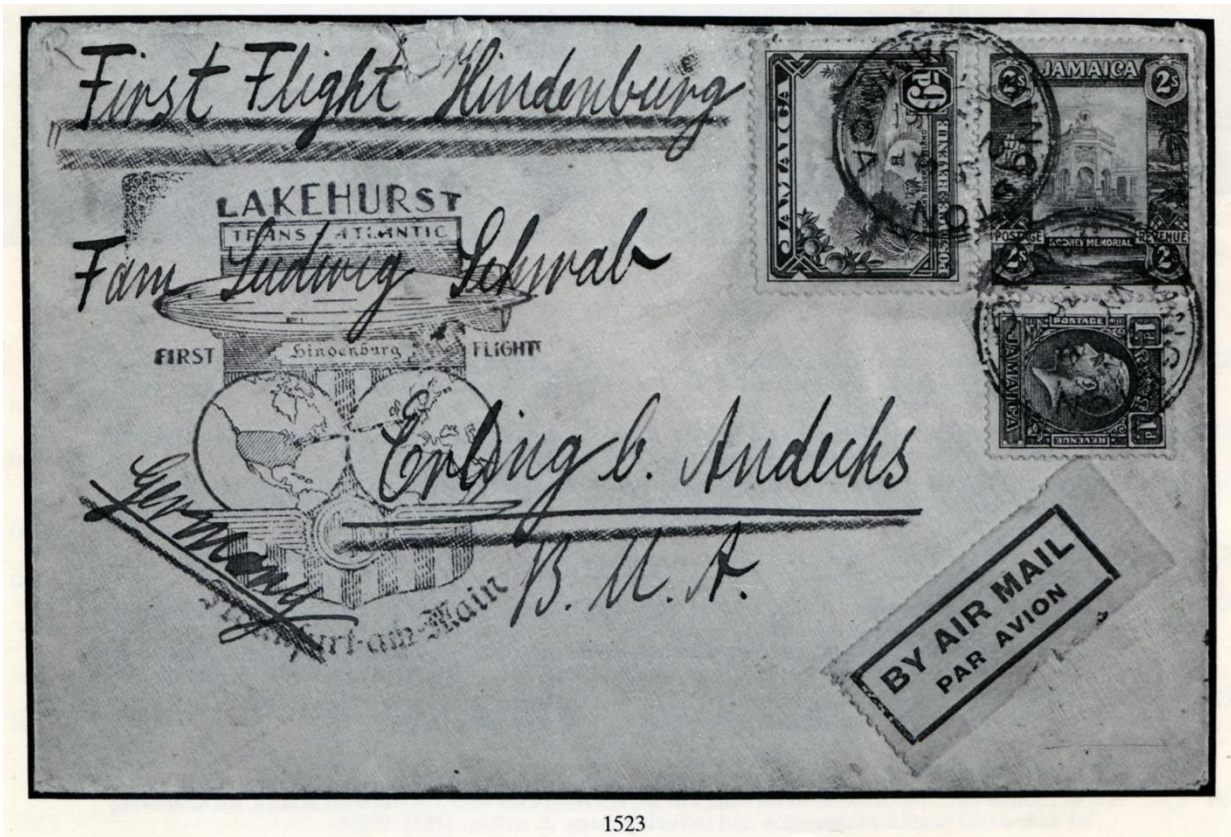 First Flight Hindenburg
LAKEHURST
TRANS-ATLANTIC
Fam. Ludwig Schwab
FIRST Hindenburg FLIGHT
Erling b. Andechs
Germany
B. U. A.
Frankfurt-am-Main
JAMAICA
POSTAGE & REVENUE
JAMAICA
2s 2s
POSTAGE REVENUE
RODNEY MEMORIAL
2s 2s
POSTAGE
JAMAICA
REVENUE
1d 1d
KINGSTON
JAMAICA
BY AIR MAIL
PAR AVION
1523